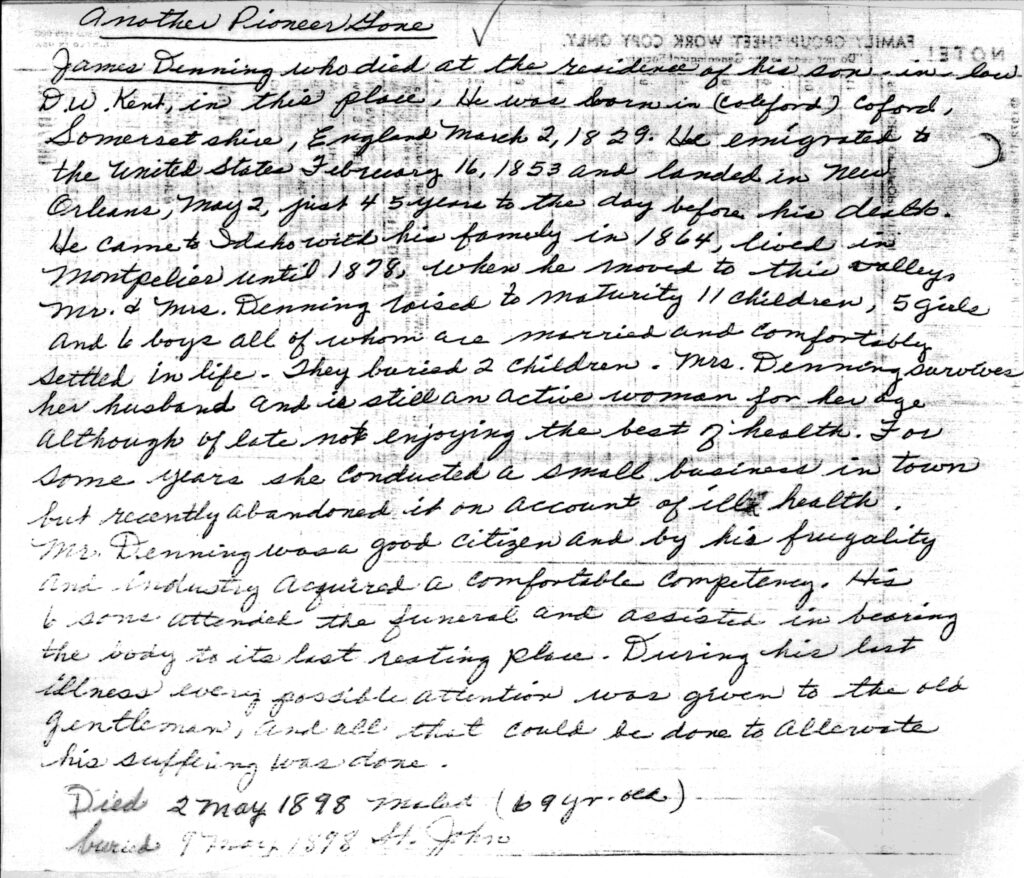 Another Pioneer Gone
FAMILY GROUP SHEET WORK COPY ONLY.
NOTE!
James Denning who died at the residence of his son-in-law
D.W. Kent, in this place. He was born in (coleford) Coford,
Somersetshire, England March 2, 1829. He emigrated to
the United States February 16, 1853 and landed in New
Orleans, May 2, just 45 years to the day before his death.
He came to Idaho with his family in 1864, lived in
Montpelier until 1878, when he moved to this valley.
Mr. & Mrs. Denning raised to maturity 11 children, 5 girls
and 6 boys all of whom are married and comfortably
settled in life. They buried 2 children. Mrs. Denning survives
her husband and is still an active woman for her age
although of late not enjoying the best of health. For
some years she conducted a small business in town
but recently abandoned it on account of ill health.
Mr. Denning was a good citizen and by his frugality
and industry acquired a comfortable competency. His
6 sons attended the funeral and assisted in bearing
the body to its last resting place. During his last
illness every possible attention was given to the old
gentleman, and all that could be done to alleveate
his suffering was done.
Died 2 May 1898 Malad (69 yr. old)
buried 9 May 1898 St. John